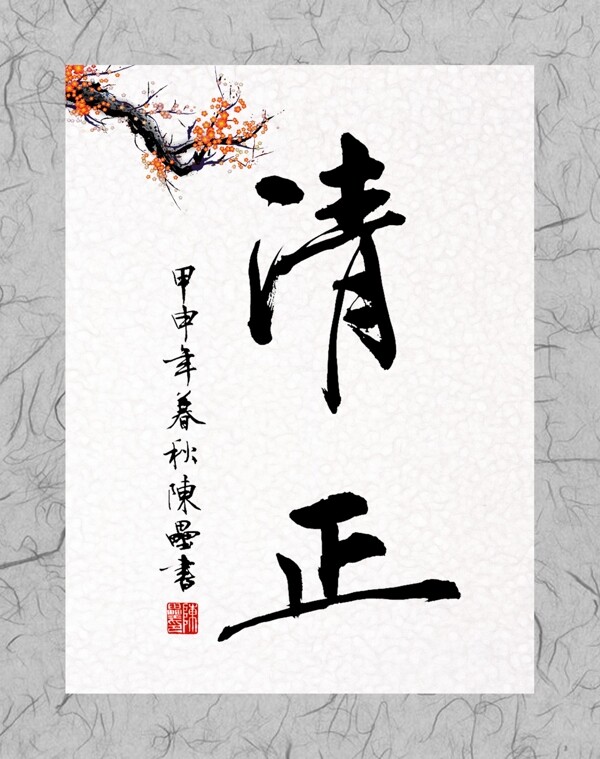 清正
甲申年春秋陳壘書